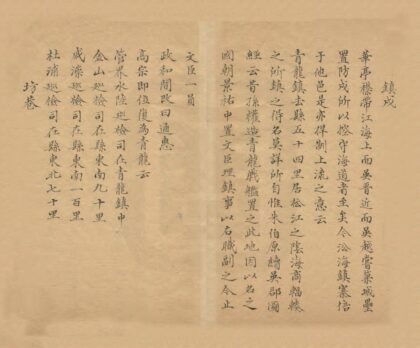 鎮戍
華亭襟帶江海上而吳晉近而吳越嘗築城壘
置防戍所以控守海道者至矣今沿海鎮寨倍
于他邑是亦得制上流之意云
青龍鎮去縣五十四里居松江之陰海商輻輳
之所鎮之得名莫詳所自惟朱伯原續吳郡圖
經云昔孫權造青龍戰艦置之此地因以名之
國朝景祐中置文臣理鎮事以右職副之今止
文臣一員
政和間改曰通惠
高宗即位復為青龍云
管界水陸巡檢司在青龍鎮中
金山巡檢司在縣東南九十里
戚漴巡檢司在縣東南一百里
杜浦巡檢司在縣東北七十里
坊巷